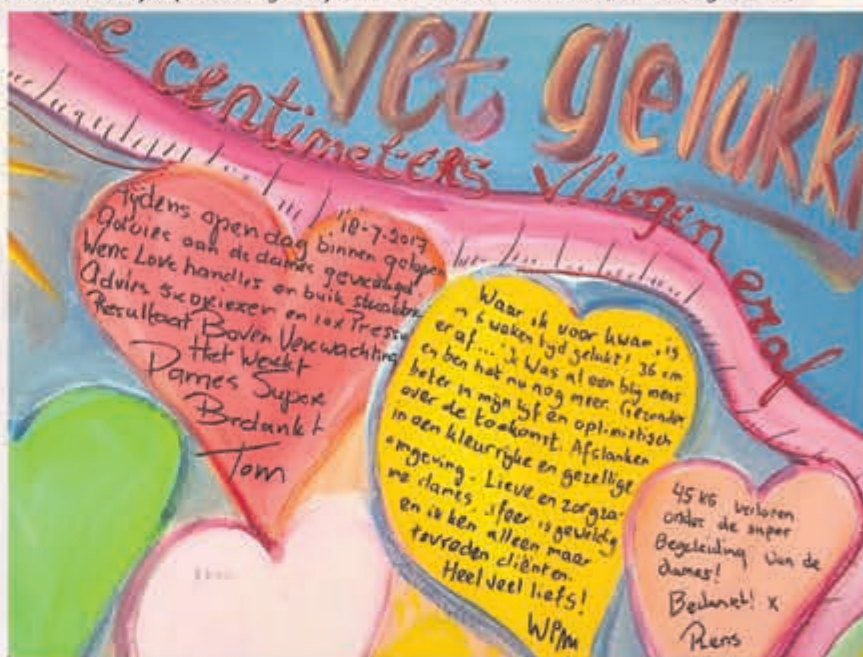 Vet gelukk
centimeters vliegen eraf
18-7-2017
Tijdens open dag binnen gelopen
advies aan de dames gevraagd
Wens Love handles en buik
Advies 5x en 10x
Resultaat Boven Verwachting
Het Werkt
Dames Super
Bedankt
Tom
Waar ik voor kwam, is
in 6 weken tyd gelukt! 36 cm
er af... 'k Was al een bly mens
en ben het nu nog meer. Gezonder
beter in mijn lyf en optimistisch
over de toekomst. Afslanken
in een kleurryke en gezellige
omgeving. Lieve en zorgza-
me dames, sfeer is geweldig
en ik ken alleen maar
tevreden cliënten.
Heel veel liefs!
45 KG verloren
onder de super
Begeleiding van de
dames!
Bedankt! x
Rens